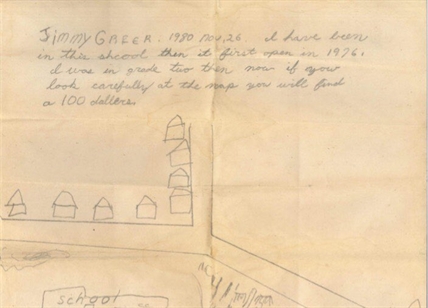 Jimmy GREER. 1980 Nov, 26. I have been
in this shcool then it first open in 1976.
I was in grade two then now if you
look carefully at the map you will find
a 100 dollers.
school